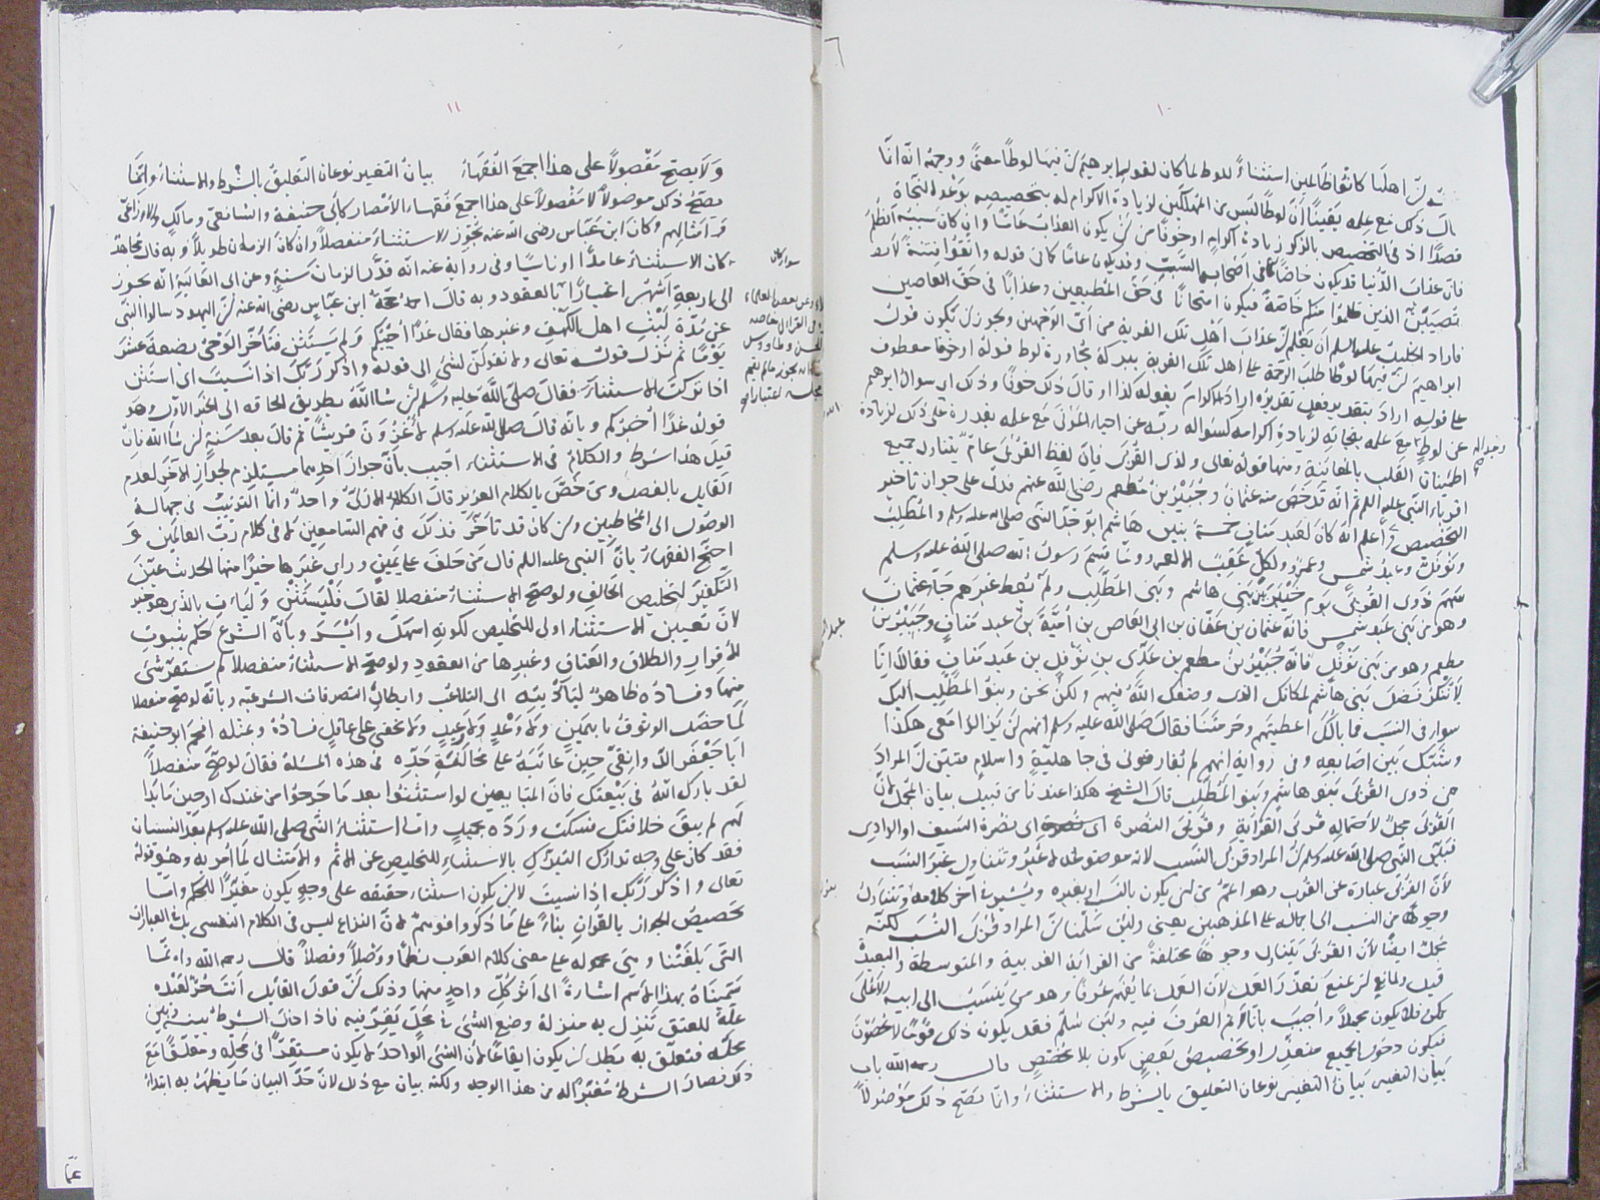 ١٠
اهلها كانوا ظالمين استثناءً للوط لما كان لقول ابرهيم ان فيها لوطا معنىً ووجه انه انما
قال ذلك مع علمه يقينًا ان لوطًا ليس من المهلكين لزيادة الاكرام له بتخصيصه بوعد النجاة
قصدًا اذ في التخصيص بالذكر زيادة اكرام او خوفًا من ان يكون العذاب عامًّا وان كان سببه الظلم
فان عذاب الدنيا قد يكون خاصًّا كما في اصحاب السبت وقد يكون عامًّا كما في قوله واتقوا فتنة لا
تصيبن الذين ظلموا منكم خاصة فيكون امتحانًا في حق المطيعين وعذابًا في حق العاصين
فاراد الخليل عليه السلم ان يعلم ان عذاب اهل تلك القرية من اي الوجهين ويجوز ان تكون قول
ابراهيم ان فيها لوطا طلب الرحمة على اهل تلك القرية ببركة مجاورة لوط قوله او خوفا معطوف
على قوله اراد بتقدير فعل تقديره اراد الاكرام بقوله كذا او قال ذلك خوفًا وذلك اي سوال ابرهيم
عن لوط مع علمه بنجاته لزيادة اكرامه كسواله ربه عن احياء الموتى مع علمه بقدرة على ذلك لزيادة
اطمئنان القلب بالمعاينة ومنها قوله تعالى ولذي القربى فان لفظ القربى عام يتناول جميع
اقرباء النبي عليه السلم ثم انه قد خص منه عثمان وجبير بن مطعم رضي الله عنهم فدل على جواز تاخير
التخصيص اعلم انه كان لعبد مناف خمسة بنين هاشم ابو جد النبي صلى الله عليه وسلم والمطلب
ونوفل وعبد شمس وعمرو ولكل عقب الا عمرو وثنا قسم رسول الله صلى الله عليه وسلم
سهم ذوي القربى يوم خيبر بين بني هاشم وبني المطلب ولم يعط غيرهم جاء عثمان
وهو من بني عبد شمس فانه عثمان بن عفان بن ابي العاص بن امية بن عبد مناف وجبير بن
مطعم وهو من بني نوفل فانه جبير بن مطعم بن عدي بن نوفل بن عبد مناف فقالا انا
لا ننكر فضل بني هاشم لمكانك الذي وضعك الله فيهم ولكن نحن وبنو المطلب اليك
سواء في النسب فما بالك اعطيتهم وحرمتنا فقال صلى الله عليه وسلم انهم لن يزالوا معي هكذا
وشبك بين اصابعه وفي رواية انهم لم تفارقوني في جاهلية ولا اسلام فتبين ان المراد
من ذوي القربى بنو هاشم وبنو المطلب قال الشيخ هكذا عندنا من قبيل بيان المجمل لان
القربى مجمل لاحتماله قربى القرابة وقربى النصرة اي نصرة السيف او الوادي
فبين النبي صلى الله عليه وسلم ان المراد قربى النسب لانه موضوع له لا غير ويتناول غير النسب
لان القربى عبارة عن القرب وهو اعم من ان يكون بالنسب او بغيره ويشير اخر كلامه ويتناول
وجوهًا من النسب الى اجماله على المذهبين يعني ولئن سلمنا ان المراد قربى النسب لكنه
مجمل ايضًا لان القربى يتناول وجوهًا مختلفة من القرابة القريبة والمتوسطة والبعيدة
قيل ولمانع ان يمنع تعذر العمل لان العمل بما يفهم عرفا وهو من ينتسب الى ابيه الاعلى
ممكن فلا يكون مجملًا واجيب بانا لا نم العرف فيه ولئن سلم فقد يكونه ذلك قومًا لا يحصون
فيكون دخول الجميع متعذرا وتخصيص بعض يكون بلا مخصص قال رحمه الله باب
بيان التغيير بيان التغيير نوعان التعليق بالشرط والاستثناء وانما يصح ذلك موصولًا
١١
ولا يصح مفصولًا على هذا اجمع الفقهاء بيان التغيير نوعان التعليق بالشرط والاستثناء وانما
يصح ذلك موصولًا لا مفصولًا على هذا اجمع فقهاء الامصار كابي حنيفة والشافعي ومالك والاوزاعي
وامثالهم وكان ابن عباس رضي الله عنه يجوز الاستثناء منفصلًا وان كان الزمان طويلًا وبه قال مجاهد
كان الاستثناء عامدًا او ناسيًا وفي رواية عنه انه قدر الزمان سنة وعن ابي العالية انه يجوز
الى اربعة اشهر اعتبارًا بالعقود وبه قال احمد محتجا ابن عباس رضي الله عنه ان اليهود سالوا النبي
عن مدة لبث اهل الكهف وغيرها فقال غدًا اجيبكم ولم يستثن فتأخر الوحي بضعة عشر
يومًا ثم نزل قوله تعالى ولا تقولن لشيء الى قوله واذكر ربك اذا نسيت اي استثن
اذا تركت الاستثناء فقال صلى الله عليه وسلم ان شاء الله بطريق الحاقه الى الخبر الاول وهو
قوله غدًا اخبركم وبانه قال صلى الله عليه وسلم لاغزون قريشًا ثم قال بعد سنة ان شاء الله فان
قيل هذا شرط والكلام في الاستثناء اجيب بان جواز احدهما مستلزم لجواز الاخر لعدم
القايل بالفصل ومن خص بالكلام العزيز قال الكلام الازلي واحد وانما الترتيب في جهات
الوصول الى المخاطبين وان كان قد تاخر فذلك في فهم السامعين لا في كلام رب العالمين و
احتج الفقهاء بان النبي عليه السلم قال من حلف على يمين وراى غيرها خيرًا منها الحديث عين
التكفير لتخليص الحالف ولو صح الاستثناء منفصلا لقال فليستثن وليأت بالذي هو خير
لان تعيين الاستثناء اولى للتخليص لكونه اسهل وايسر وبان الشرع حكم بثبوت
الاقرار والطلاق والعتاق وغيرها من العقود ولو صح الاستثناء منفصلا لم يستقر شيء
منها وفساده ظاهر لتأديته الى التلاعب وابطال التصرفات الشرعية وبانه لو صح منفصلا
لما حصل الوثوق بيمين ولا وعد ولا وعيد ولا يخفى على عاقل فساده وبمثله افحم ابو حنيفة
ابا جعفر الدوانيقي حين عاتبه على مخالفة جده في هذه المسئلة فقال لو صح منفصلًا
لقد بارك الله في بيعتك فان المبايعين لو استثنوا بعد ما خرجوا من عندك او حين ما بدا
لهم لم يبق خلافتك فسكت ورده بجميل واما استثناء النبي صلى الله عليه وسلم بعد النسيان
فقد كان على وجه تدارك التبرك بالاستثناء للتخليص عن الاثم والامتثال لما امر به وهو قوله
تعالى واذكر ربك اذا نسيت لا ان يكون استثناء حقيقة على وجه يكون مغيرًا للحكم واما
تخصيص الجواز بالقرآن بناءً على ما ذكروا فوهم لان النزاع ليس في الكلام النفسي بل في العبارات
التي بلغتنا وهي محمولة على معنى كلام العرب نظمًا ووصلًا وفصلًا قال رحمه الله وانما
سميناه بهذا الاسم اشارة الى اثر كل واحد منهما وذلك ان قول القائل انت حر لعبده
علة للعتق تنزل به منزلة وضع الشيء في محل يقر فيه فاذا حال الشرط بينه وبين
محله فتعلق به بطل ان يكون ايقاعًا لان الشيء الواحد لا يكون مستقرًّا في محله ومعلقًا مع
ذلك فصار الشرط مغيرًا له من هذا الوجه ولكنه بيان مع ذلك لان حد البيان ما يظهر به ابتداء